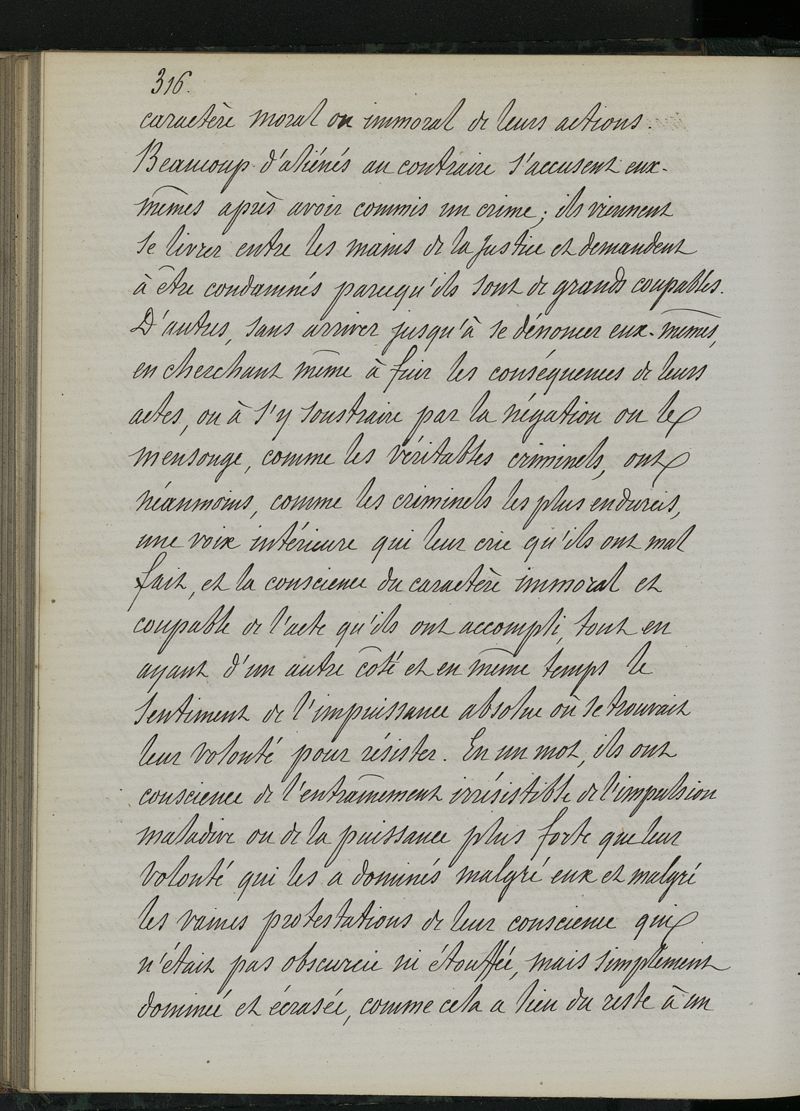 316.
caractère moral ou immoral de leurs actions.
Beaucoup d'aliénés au contraire s'accusent eux-
mêmes après avoir commis un crime; ils viennent
se livrer entre les mains de la justice et demandent
à être condamnés parcequ'ils sont de grands coupables.
D'autres, sans arriver jusqu'à se dénoncer eux-mêmes,
en cherchant même à fuir les conséquences de leurs
actes, ou à s'y soustraire par la négation ou le
mensonge, comme les véritables criminels, ont
néanmoins, comme les criminels les plus endurcis,
une voix intérieure qui leur crie qu'ils ont mal
fait, et la conscience du caractère immoral et
coupable de l'acte qu'ils ont accompli, tout en
ayant d'un autre côté et en même temps le
sentiment de l'impuissance absolue où se trouvait
leur volonté pour résister. En un mot, ils ont
conscience de l'entraînement irrésistible de l'impulsion
maladive ou de la puissance plus forte que leur
volonté qui les a dominés malgré eux et malgré
les vaines protestations de leur conscience qui
n'était pas obscurcie ni étouffée, mais simplement
dominée et écrasée, comme cela a lieu du reste à un